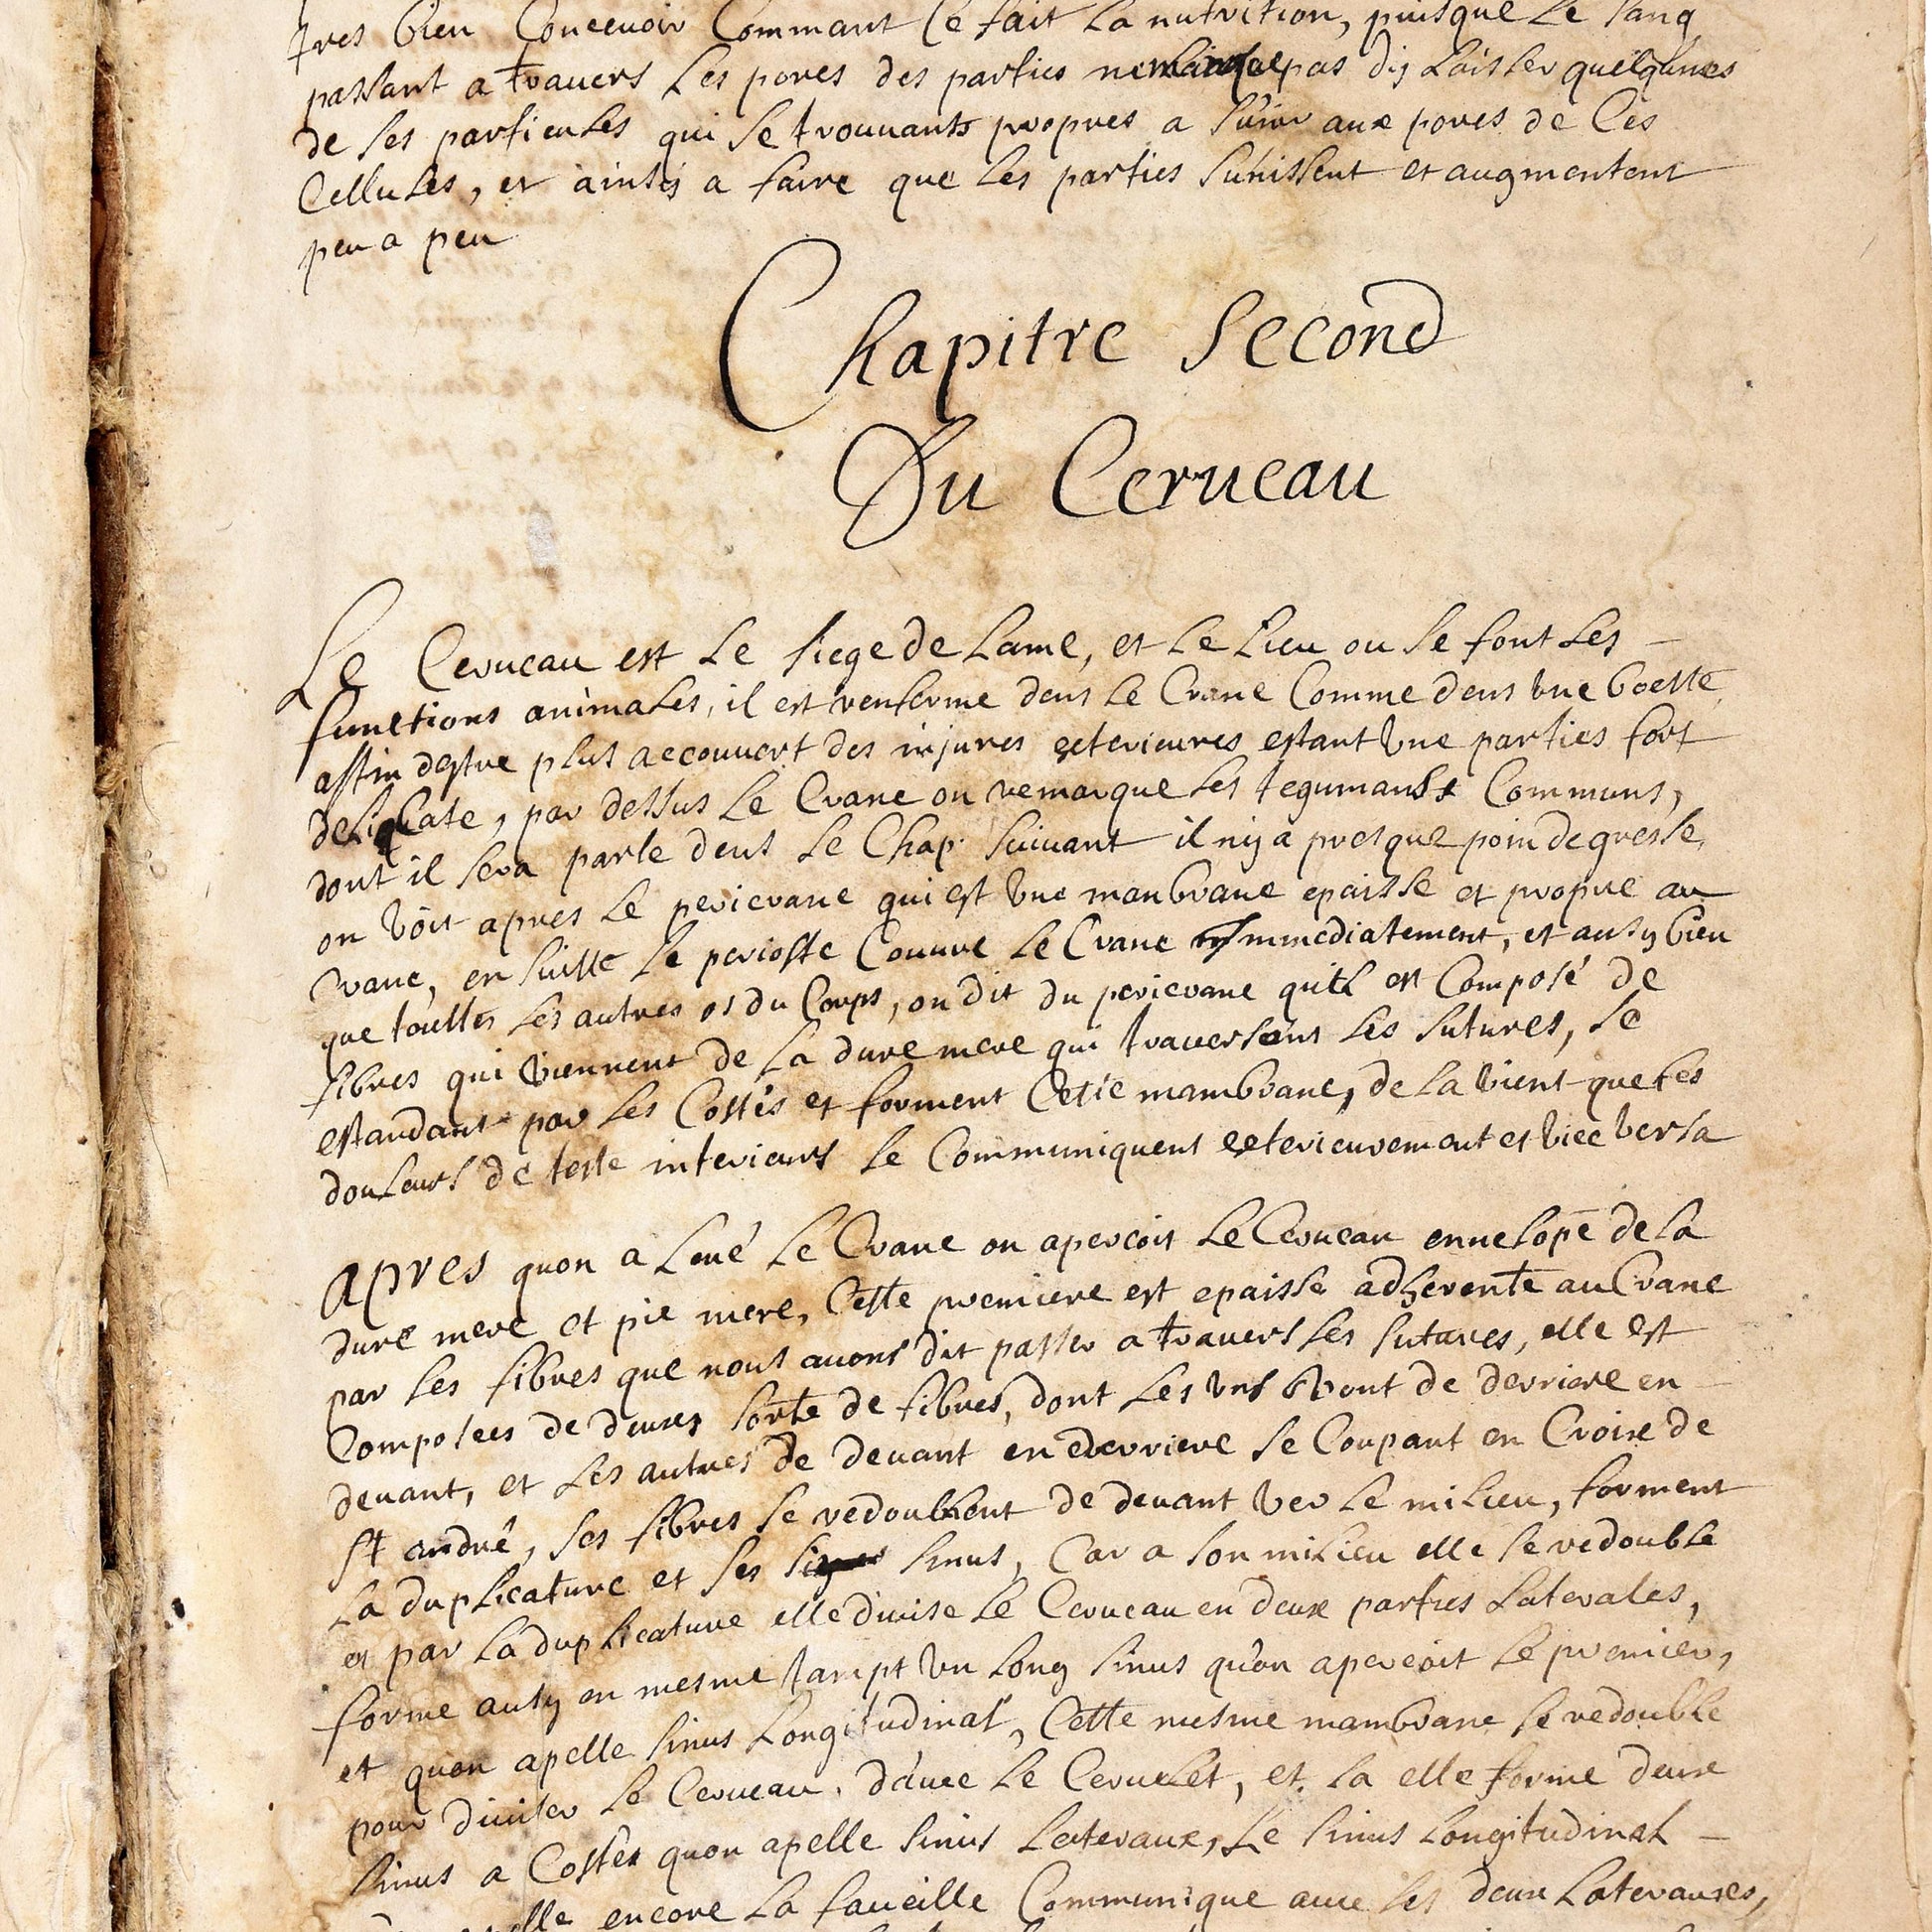 tres bien Conceuoir Commant Ce fait La nutrition, puisque Le sang
passant a trauers Les pores des parties ne manque pas dij Laisser quelqunes
de ses particules qui se trouuants propres a sunir aux pores de Ces
Cellules, et ainsij a faire que Les parties sunissent et augmentent
peu a peu
Chapitre Second
Du Cerueau
Le Cerueau est Le siege de Lame, et Le Lieu ou se font Les
functions animales, il est renferme dens Le Crane Comme dens vne boeste
affin destre plus accouuert des injures exterieures estant vne parties fort
deliqCate, par dessus Le Crane on remarque Les tegumants Communs,
dont il sera parle dens Le Chap. suiuant il nij a presque poin de gresse,
on voit apres Le pericrane qui est vne manbrane epaisse et propre au
Crane, en suitte Le perioste Couure Le Crane immediatement, et ausij bien
que touttes Les autres os du Corps, on dit du pericrane quil est Composé de
fibres qui viennent de La dure mere qui trauersans Les sutures, se
estandant par Les Costés et forment Cette mambrane, de La vient que Les
douleurs de teste interieurs se Communiquent exterieurement et vice versa
apres quon a Leué Le Crane on apercoit Le Cerueau enuelopé de La
dure mere et pie mere, Cette premiere est epaisse adherente au Crane
par Les fibres que nous auons dit passer a trauers Les sutures, elle est
Composees de deuxes sorte de fibres, dont Les vns vont de derriere en
deuant, et Les autres de deuant en derriere se Coupant en Croix de
st andré, ses fibres se redoublent de deuant ver Le milieu, forment
La duplicature et ses sinus, Car a son milieu elle se redouble
et par La duplicature elle diuise Le Cerueau en deux parties Laterales,
forme ausij en mesme tampt vn Long sinus qu'on apercoit Le premier,
et quon apelle sinus Longitudinal, Cette mesme mambrane se redouble
pour diuiser Le Cerueau, d'auec Le Ceruelet, et La elle forme deux
sinus a Costes quon apelle sinus Lateraux, Le sinus Longitudinal
encore La faueille Communique auec Les deux Lateraux,